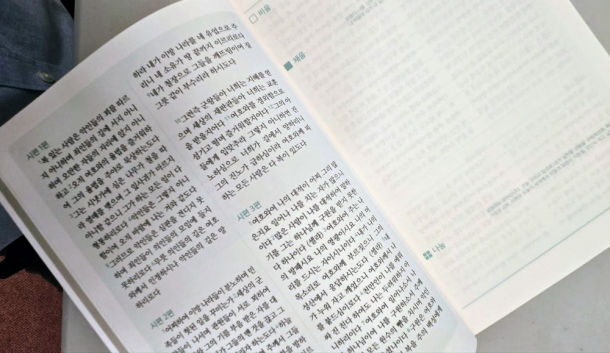 시편 1편
¹복 있는 사람은 악인들의 꾀를 따르
지 아니하며 죄인들의 길에 서지 아니
하며 오만한 자들의 자리에 앉지 아니
하고 ²오직 여호와의 율법을 즐거워하
여 그의 율법을 주야로 묵상하는도다
³그는 시냇가에 심은 나무가 철을 따
라 열매를 맺으며 그 잎사귀가 마르지
아니함 같으니 그가 하는 모든 일이 다
형통하리로다 ⁴악인들은 그렇지 아니
함이여 오직 바람에 나는 겨와 같도다
⁵그러므로 악인들은 심판을 견디지 못
하며 죄인들이 의인들의 모임에 들지
못하리로다 ⁶무릇 의인들의 길은 여호
와께서 인정하시나 악인들의 길은 망
하리로다
시편 2편
¹어찌하여 이방 나라들이 분노하며 민
족들이 헛된 일을 꾸미는가 ²세상의 군
왕들이 나서며 관원들이 서로 꾀하여
그의 기름 부음 받은 자를 대
그들의 맨 것을 끊고 그
하라 내가 이방 나라를 네 유업으로 주
리니 네 소유가 땅 끝까지 이르리로다
⁹네가 철장으로 그들을 깨뜨림이여 질
그릇 같이 부수리라 하시도다
¹⁰그런즉 군왕들아 너희는 지혜를 얻
으며 세상의 재판관들아 너희는 교훈
을 받을지어다 ¹¹여호와를 경외함으로
섬기고 떨며 즐거워할지어다 ¹²그의 아
들에게 입맞추라 그렇지 아니하면 진
노하심으로 너희가 길에서 망하리니
그의 진노가 급하심이라 여호와께 피
하는 모든 사람은 다 복이 있도다
시편 3편
¹여호와여 나의 대적이 어찌 그리 많
은지요 일어나 나를 치는 자가 많으니
이다 ²많은 사람이 나를 대적하여 말하
기를 그는 하나님께 구원을 받지 못한
다 하나이다 (셀라) ³여호와여 주는 나
의 방패시요 나의 영광이시요 나의 머
리를 드시는 자이시니이다 ⁴내가 나의
목소리로 여호와께 부르짖으니 그의
성산에서 응답하시는도다 (셀라) ⁵내
가 누워 자고 깨었으니 여호와께서 나
를 붙드심이로다 ⁶천만인이 나를 에워
싸 진 친다 하여도 나는 두려워하지 아
니하리이다 ⁷여호와여 일어나소서 나
의 하나님이여 나를 구원하소서
비움
채움
나눔